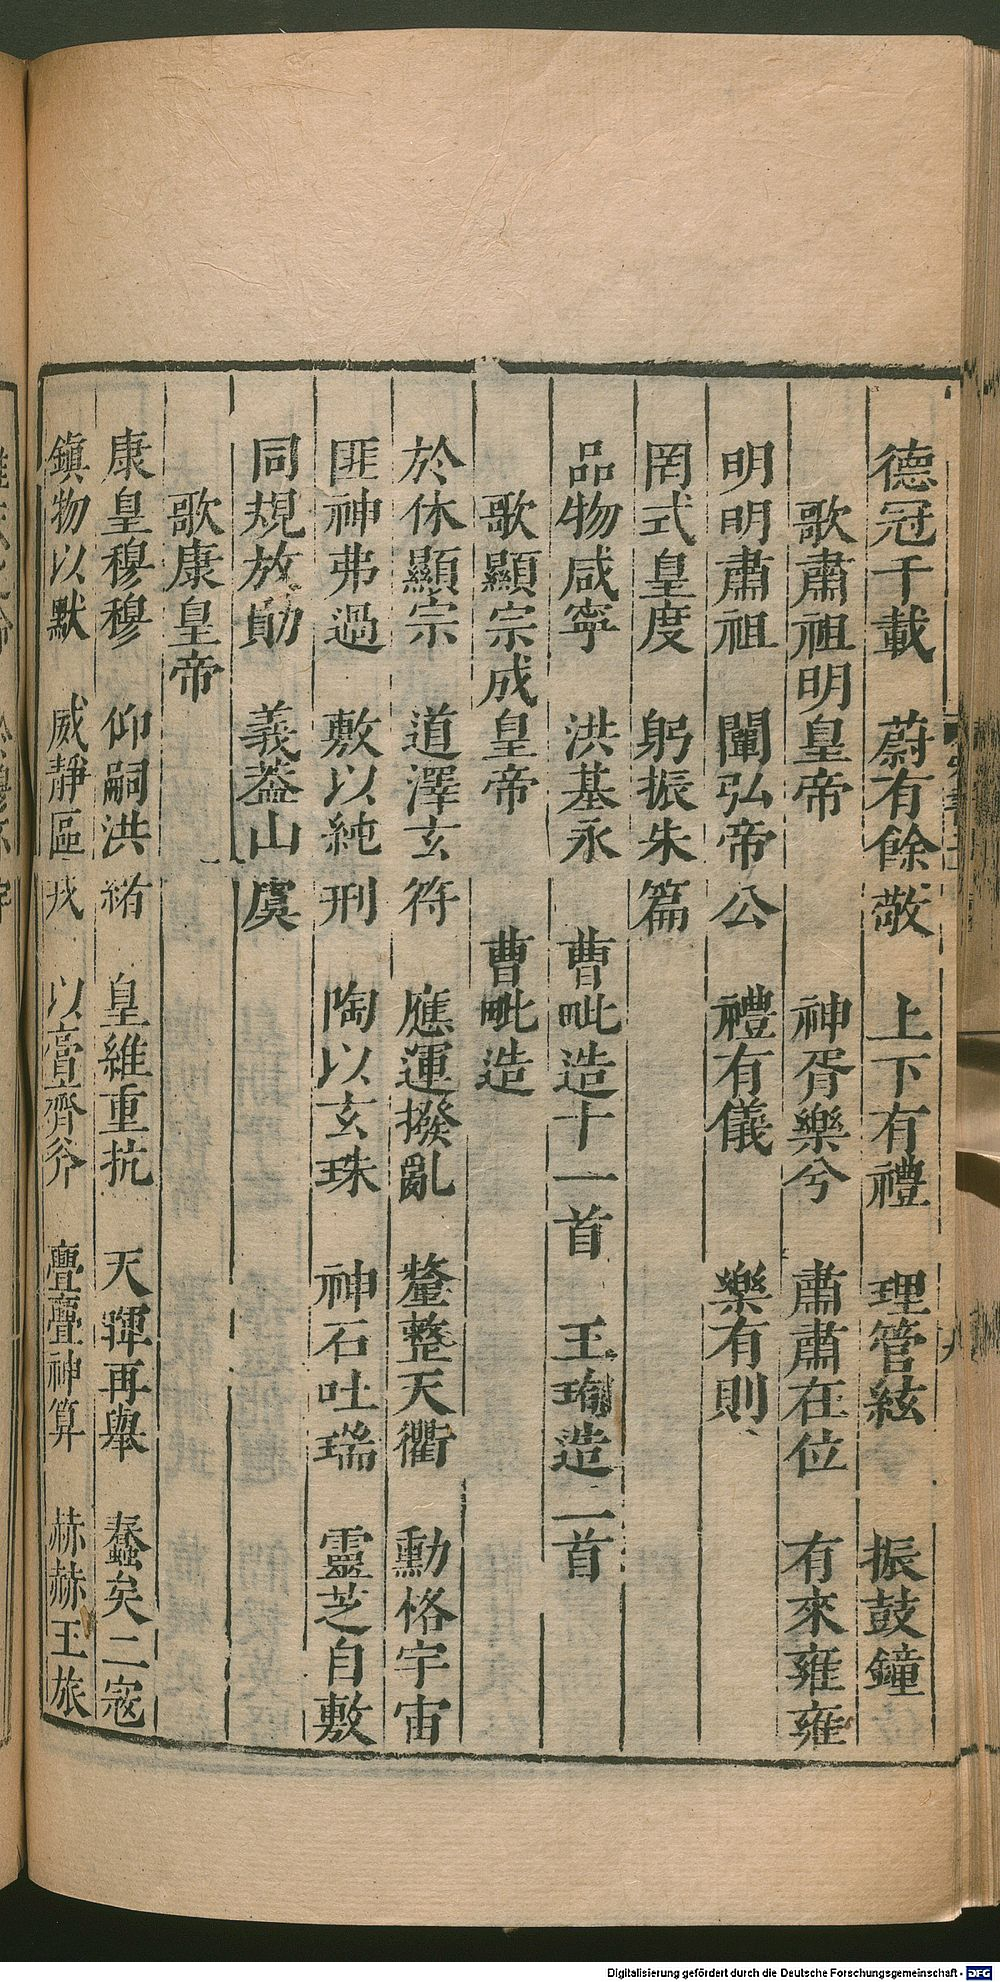 德冠千載　蔚有餘敬　上下有禮　理管絃　振鼓鐘
歌肅祖明皇帝　神胥樂兮　肅肅在位　有來雍雍
明明肅祖　闡弘帝公　禮有儀　樂有則
罔式皇度　躬振朱篇
品物咸寧　洪基永　曹毗造十一首　王珣造二首
歌顯宗成皇帝　曹毗造
於休顯宗　道澤玄符　應運撥亂　釐整天衢　勳格宇宙
匪神弗過　敷以純刑　陶以玄珠　神石吐瑞　靈芝自敷
同規放勛　義葢山虞
歌康皇帝
康皇穆穆　仰嗣洪緒　皇維重抗　天暉再舉　蠢矣二寇
鎮物以默　威靜區　以亶齊斧　亹亹神算　赫赫王旅
Digitalisierung gefördert durch die Deutsche Forschungsgemeinschaft - DFG